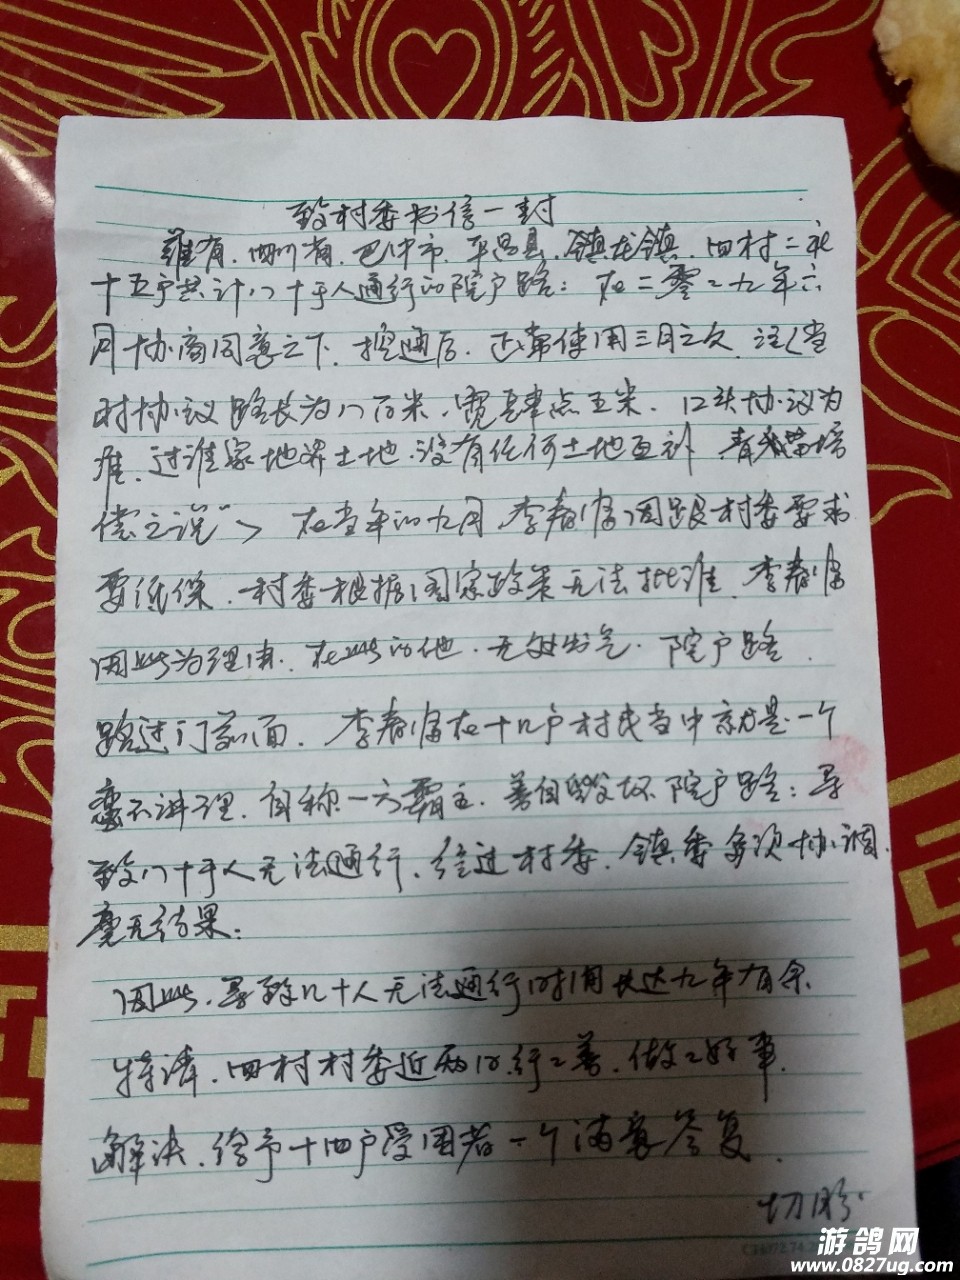 致村委书信一封
兹有.四川省.巴中市.平昌县.镇龙镇.四村二社
十五户共计八十于人通行的院户路：在二零一九年六
月十协商同意之下.挖通后.正常使用三月之久.注〈当
时协议路长为八百米.宽肆点五米.口头协议为
准.过谁家地界土地.没有任何土地互补 青苗培
偿之说"〉 在当年的九月.李春 因跟村委要求
要低保.村委根据国家政策无法批准.李春
因此为理由.在此的他.无处出气.院户路.
路过门前面.李春 在十几户村民当中就是一个
蛮不讲理.自称一方霸主.善自毁坏院户路：导
致八十于人无法通行.经过村委.镇委多次协调.
毫无结果：
因此.导致几十人无法通行时间长达九年有余.
特请.四村村委近两日.行行善.做做好事.
解决.给予十四户受困者一个满意答复.
切盼
游鸽网
www.0827ug.com